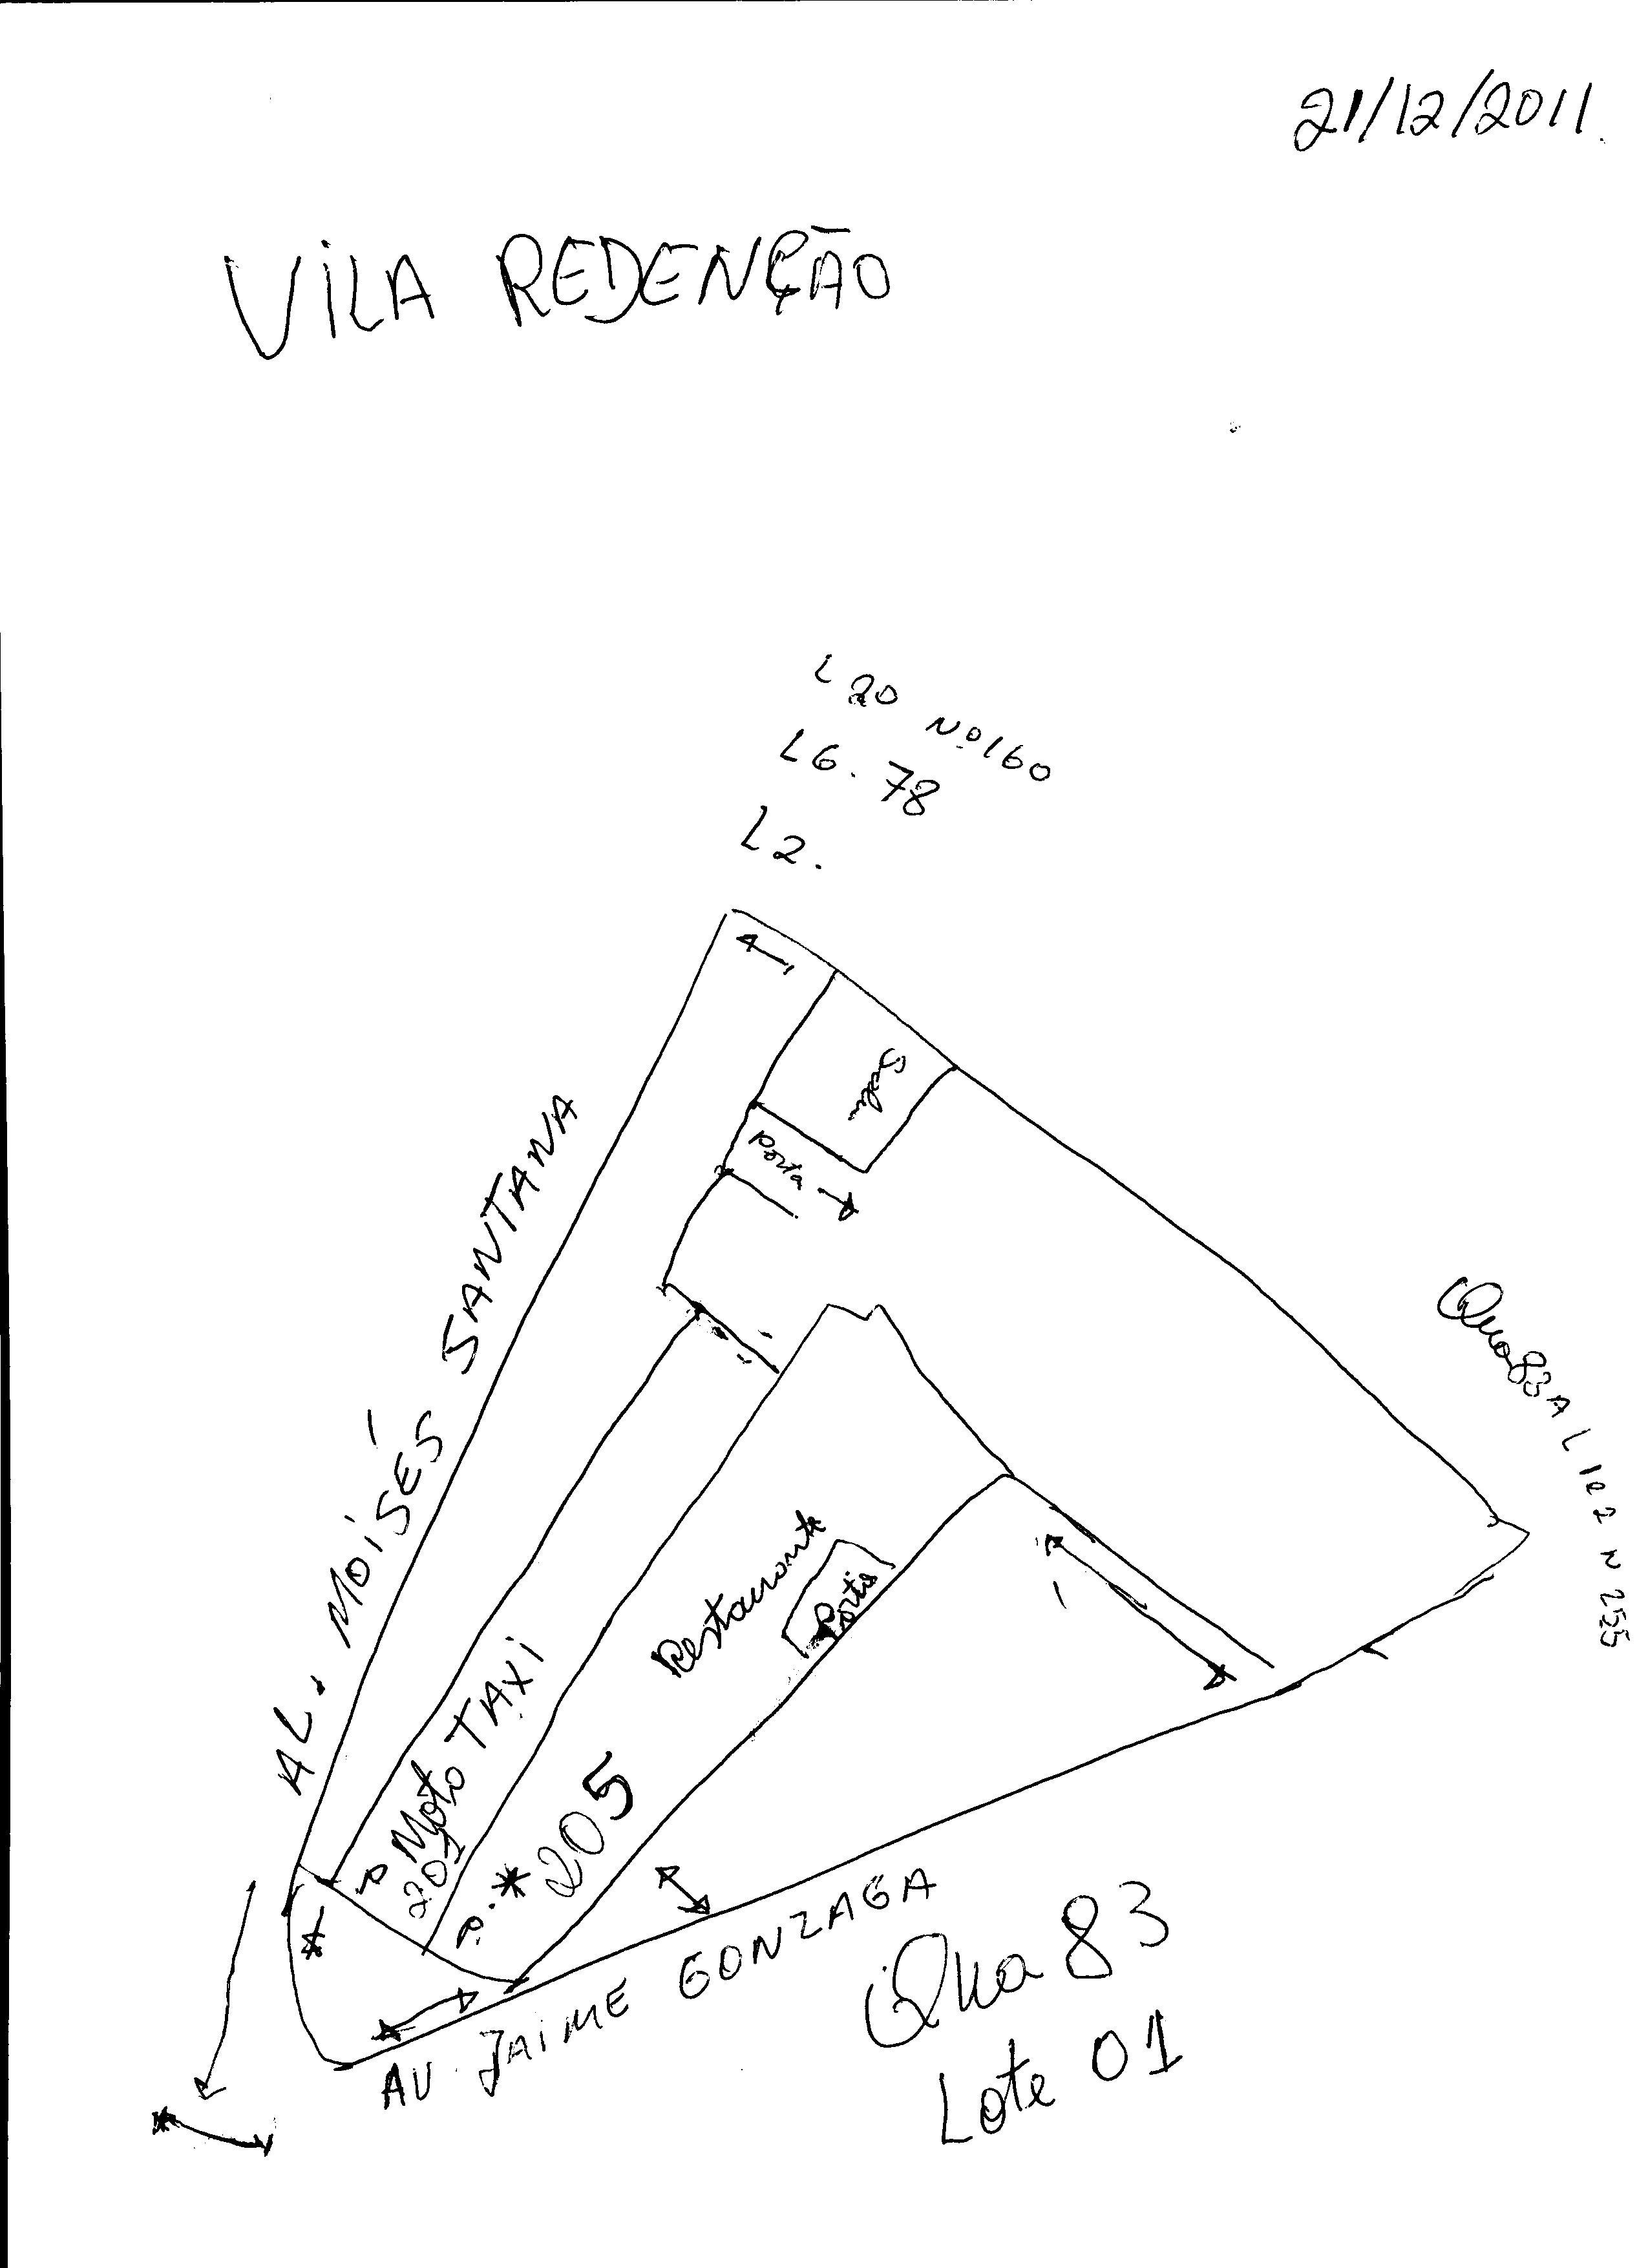 21/12/2011
VILA REDENÇÃO
L 20 Nº 160
L6. 78
L2.
Porta
AL. MOISÉS SANTANA
Qua 83A L 1e2 N 255
Restaurante
Moto TAXI
201
P. * 205
AV. JAIME GONZAGA
Qua 83
Lote 01